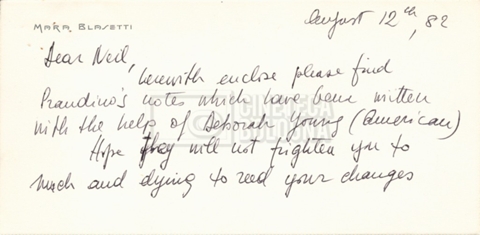 MARA BLASETTI
August 12th, 82
Dear Neil,
herewith enclose please find
Prandino's notes which have been written
with the help of Deborah Young (American)
Hope they will not frighten you to
much and dying to read your changes